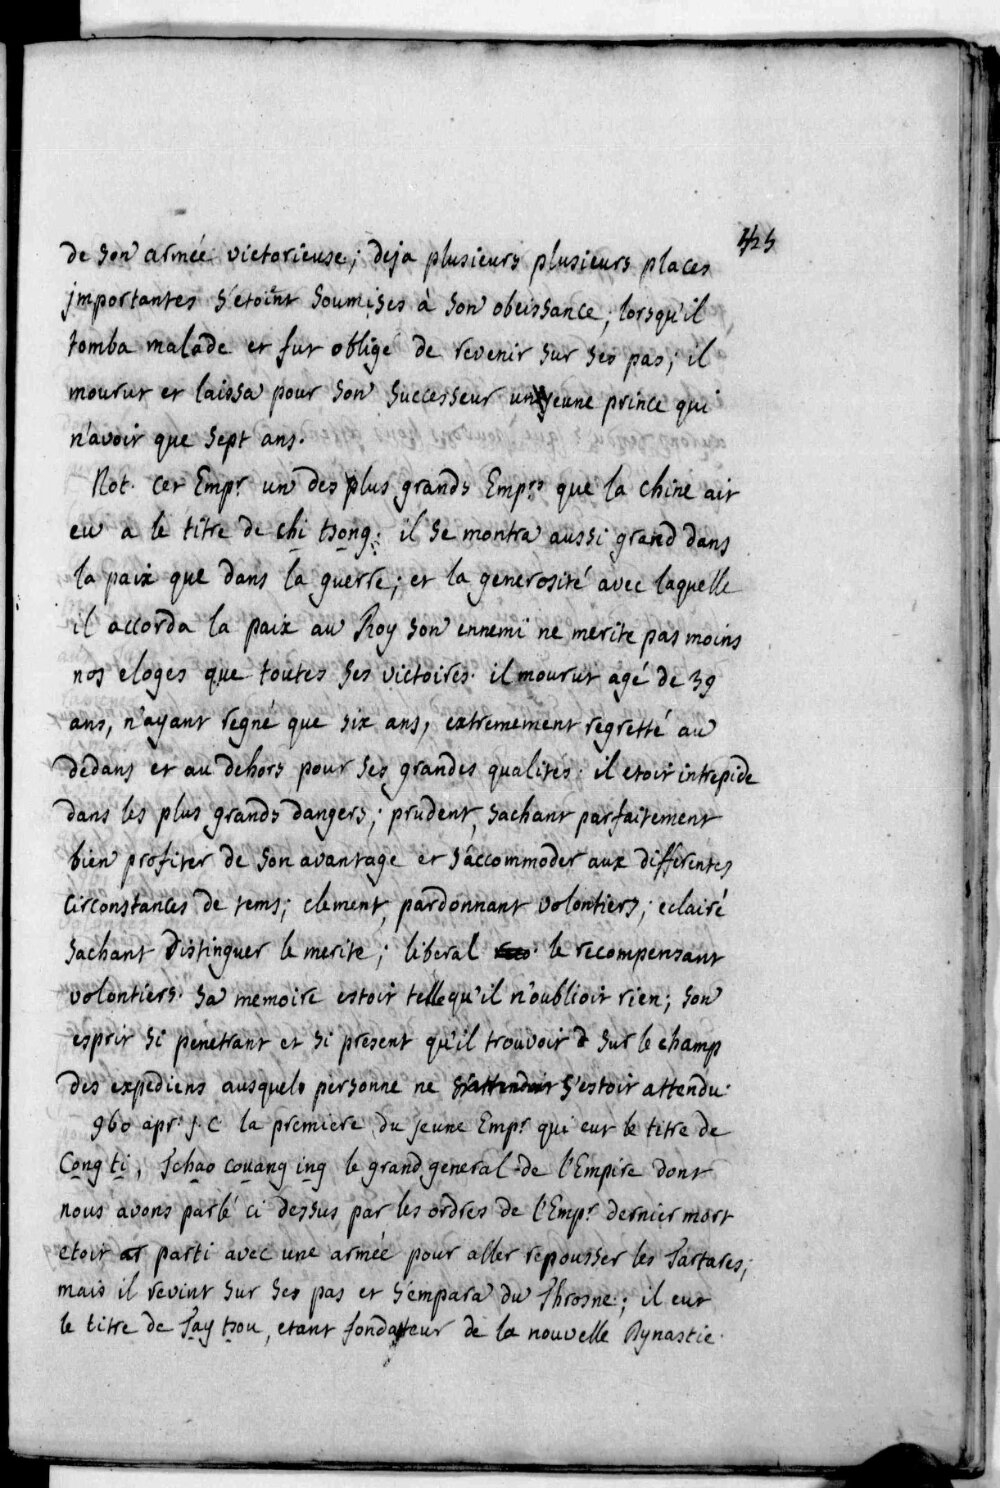 425
de son armée victorieuse; deja plusieurs plusieurs places
jmportantes s'etoint soumises à son obeissance; lorsqu'il
tomba malade et fut obligé de revenir sur ses pas; il
mourut et laissa pour son successeur un jeune prince qui
n'avoit que sept ans.
Not. cet Empr un des plus grands Emprs que la chine ait
eu a le titre de chi tsong; il se montra aussi grand dans
la paix que dans la guerre; et la generosité avec laquelle
il accorda la paix au Roy son ennemi ne merite pas moins
nos eloges que toutes ses victoires. il mourut agé de 39
ans, n'ayant regné que six ans, extremement regretté au
dedans et au dehors pour ses grandes qualités. il etoit intrepide
dans les plus grands dangers; prudent, sachant parfaitement
bien profiter de son avantage et s'accommoder aux differentes
circonstances de tems; clement, pardonnant volontiers; eclairé
sachant distinguer le merite; liberal le recompensant
volontiers. sa memoire estoit telle qu'il n'oublioit rien; son
esprit si penetrant et si present qu'il trouvoit sur le champ
des expediens ausquels personne ne s'attendoit s'estoit attendu.
960 apr. j. C la premiere du jeune Empr qui eut le titre de
Cong ti, Tchao couang ing le grand general de l'Empire dont
nous avons parlé ci dessus par les ordres de l'Empr dernier mort
etoit parti avec une armée pour aller repousser les Tartares;
mais il revint sur ses pas et s'empara du Throsne; il eut
le titre de Tay tsou, etant fondateur de la nouvelle Dynastie.